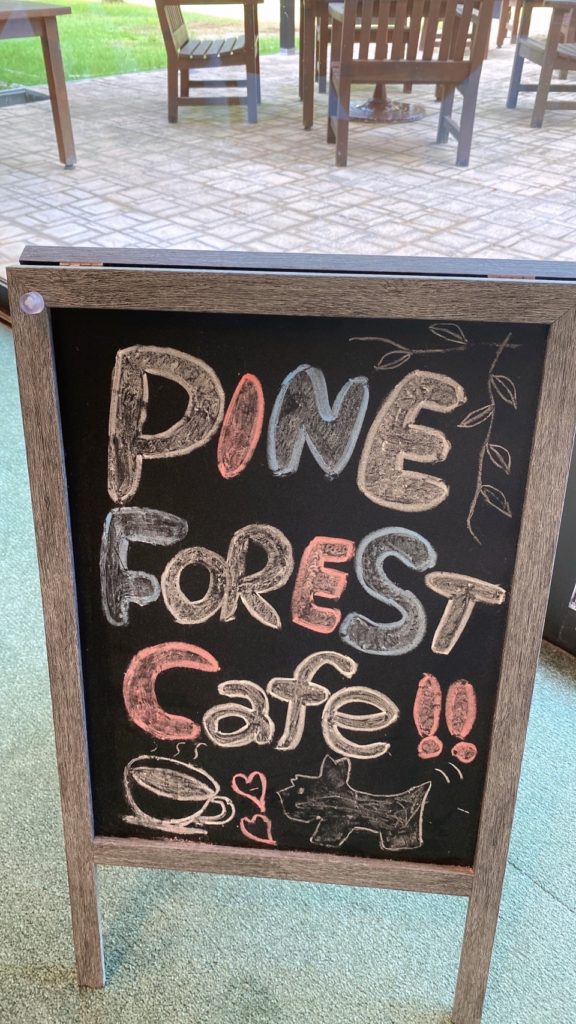 PINE
FOREST
Cafe!!